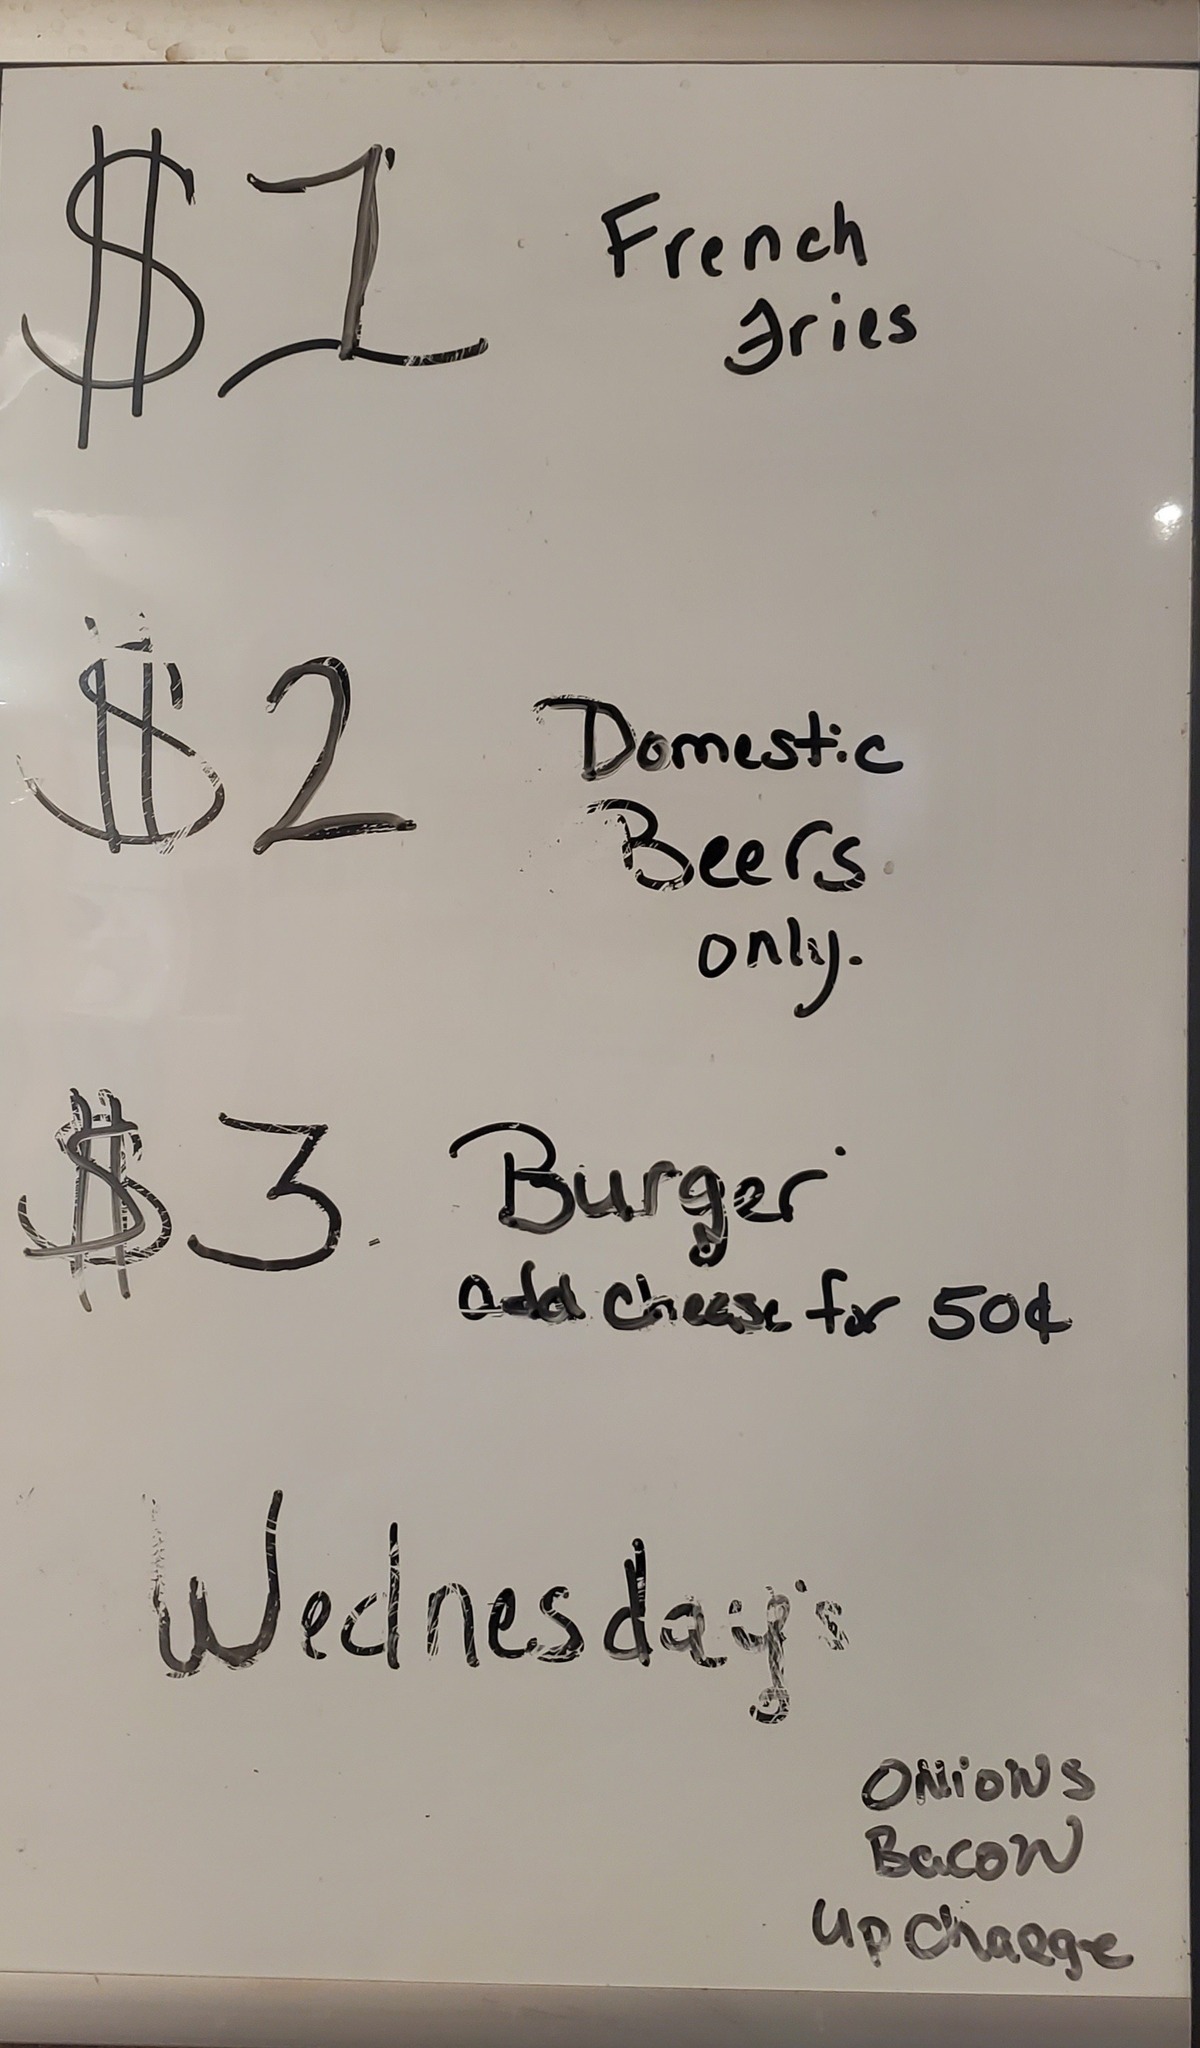 $1 French
Fries
$2 Domestic
Beers
only.
$3 Burger
add cheese for 50¢
Wednesday's
Onions
Bacon
Up Charge